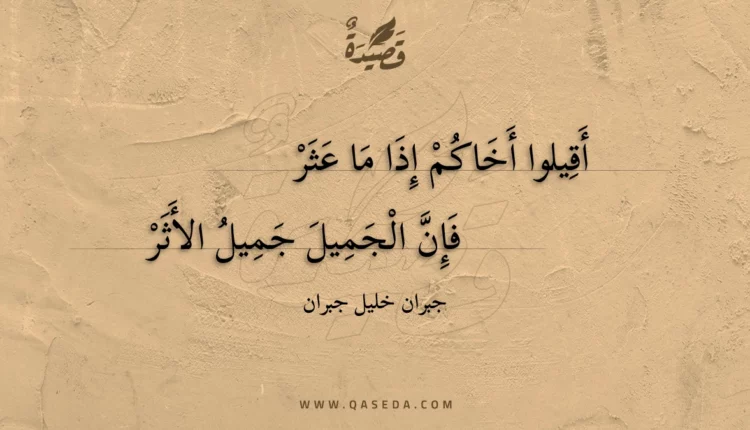 قَصِيدَةٌ
أَقِيلوا أَخَاكُمْ إِذَا مَا عَثَرْ
فَإِنَّ الْجَمِيلَ جَمِيلُ الأَثَرْ
جبران خليل جبران
WWW.QASEDA.COM